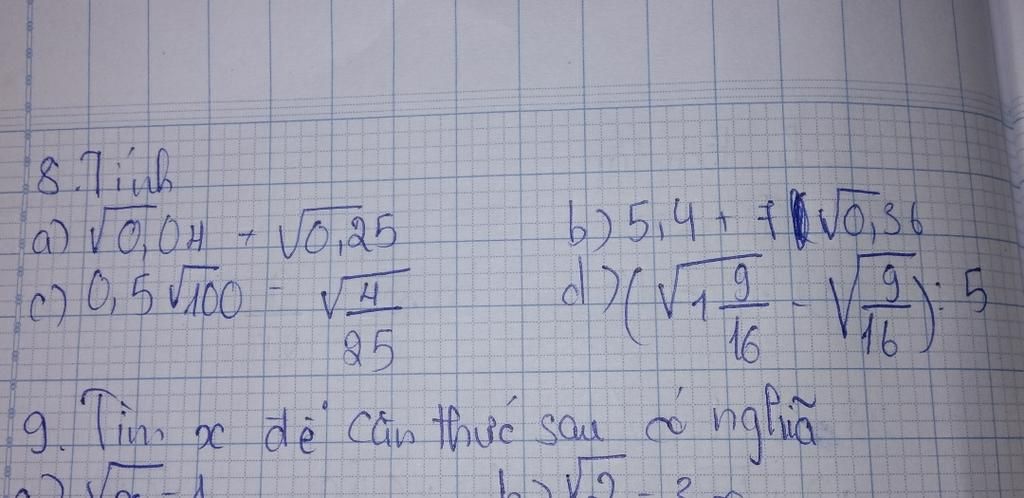 8. Tính
a) √0,04 + √0,25 b) 5,4 + 7 √0,36
c) 0,5√100 - √4/25 d) (√1 9/16 - √9/16) : 5
9. Tìm x để căn thức sau có nghĩa